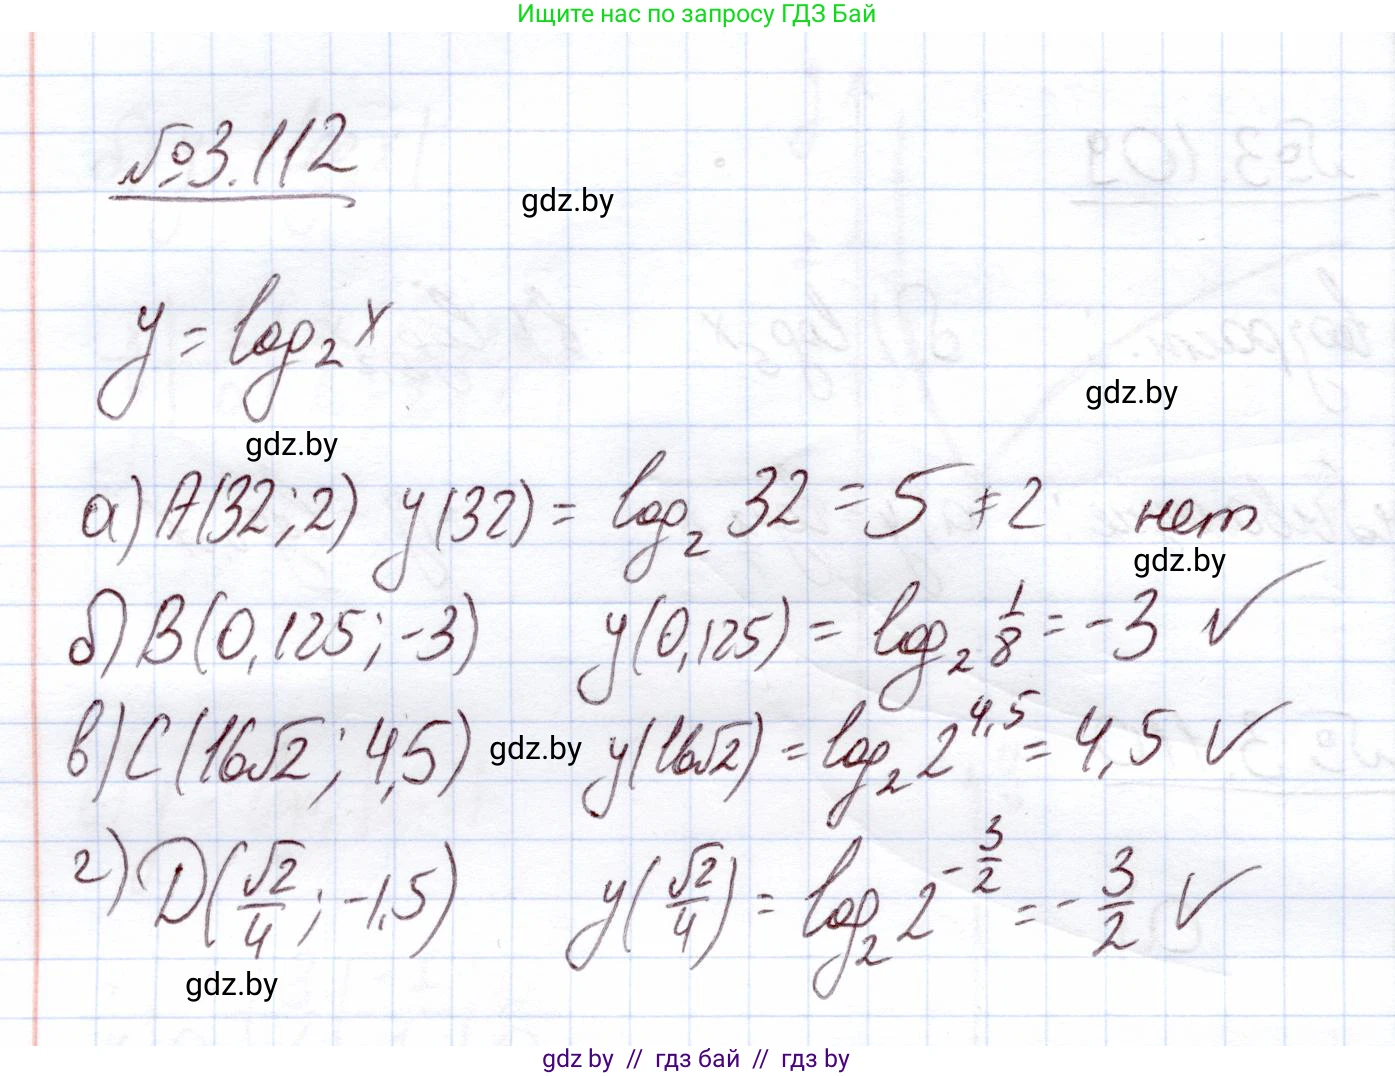 Ищите нас по запросу ГДЗ Бай
№3.112
gdz.by
y = log₂ x
gdz.by
gdz.by
а) A(32; 2) y(32) = log₂ 32 = 5 ≠ 2 нет
gdz.by
б) B(0,125; -3) y(0,125) = log₂ 1/8 = -3 ✓
в) C(16√2; 4,5) gdz.by y(16√2) = log₂ 2^4,5 = 4,5 ✓
г) D(√2/4; -1,5) y(√2/4) = log₂ 2^(-3/2) = -3/2 ✓
gdz.by
gdz by // гдз бай // гдз by